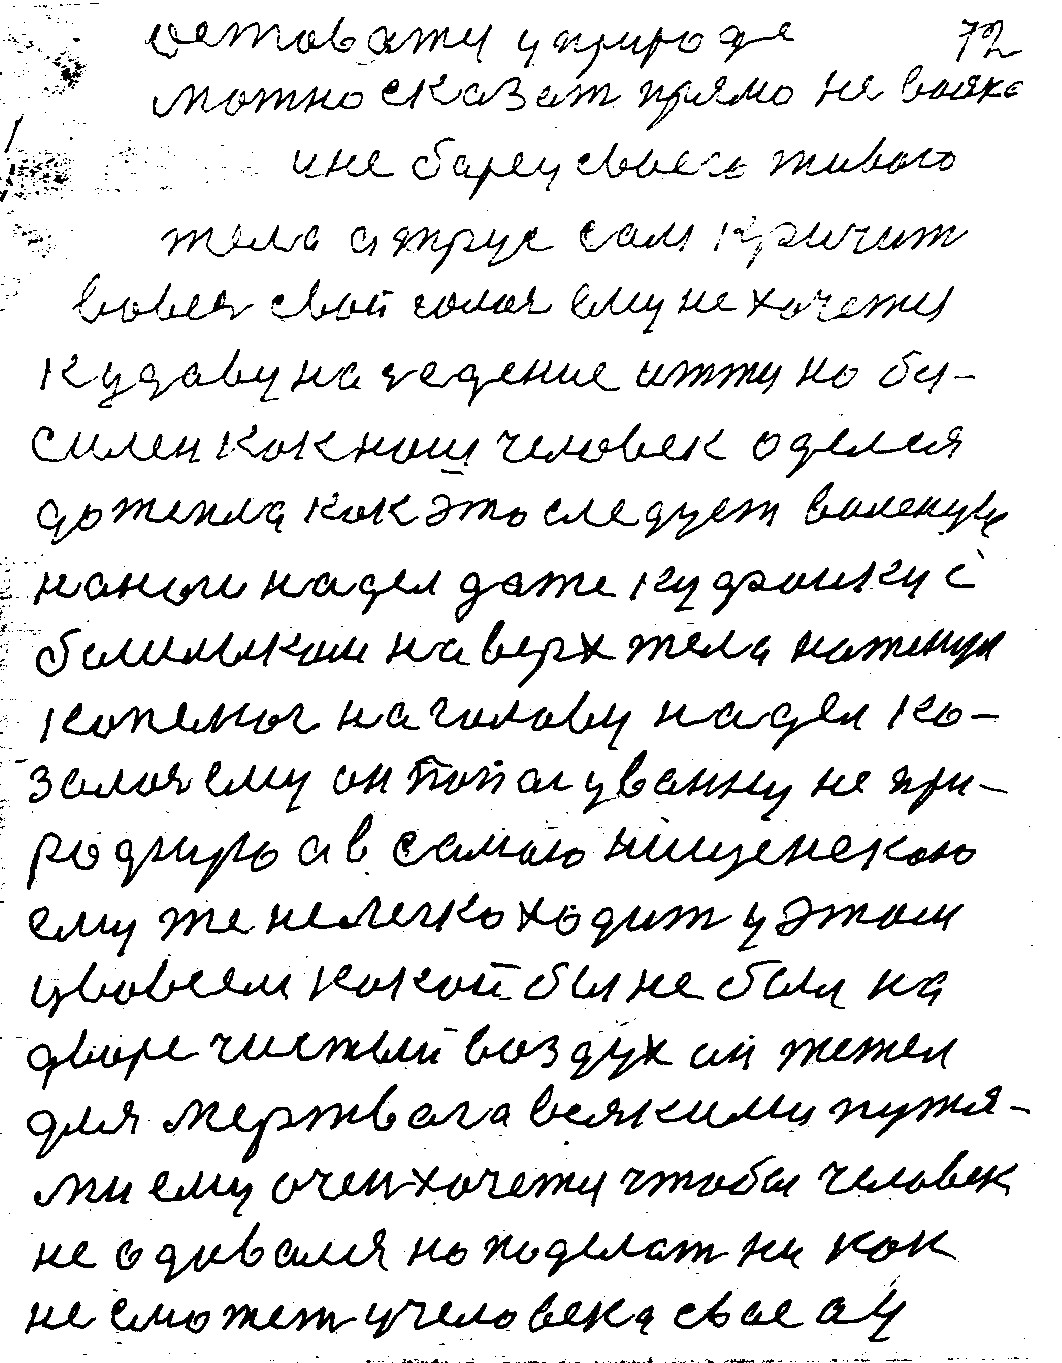 оставати у природе 72
можно сказат прямо не вояка
и не барец своего живого
тела а трус сам кричит
вовся свой голоя ему не хочети
кудаву на едение итти но бу-
силен как наш человек оделся
до тепла как это следует валенки
на ноги надел даже кудфайку с
балшлыком наверх тела натенул
капелюг наголову надел ко-
залоя ему он попал у ванну не при-
родную а в самою нищенскою
ему же нелегко ходит у этом
у вовсем какой бы не был на
дворе чистый воздух он тежел
для мертвого всякими путя-
ми ему очен хочети чтобы человек
не одивался но поделат ни как
не сможет у человека свое а у